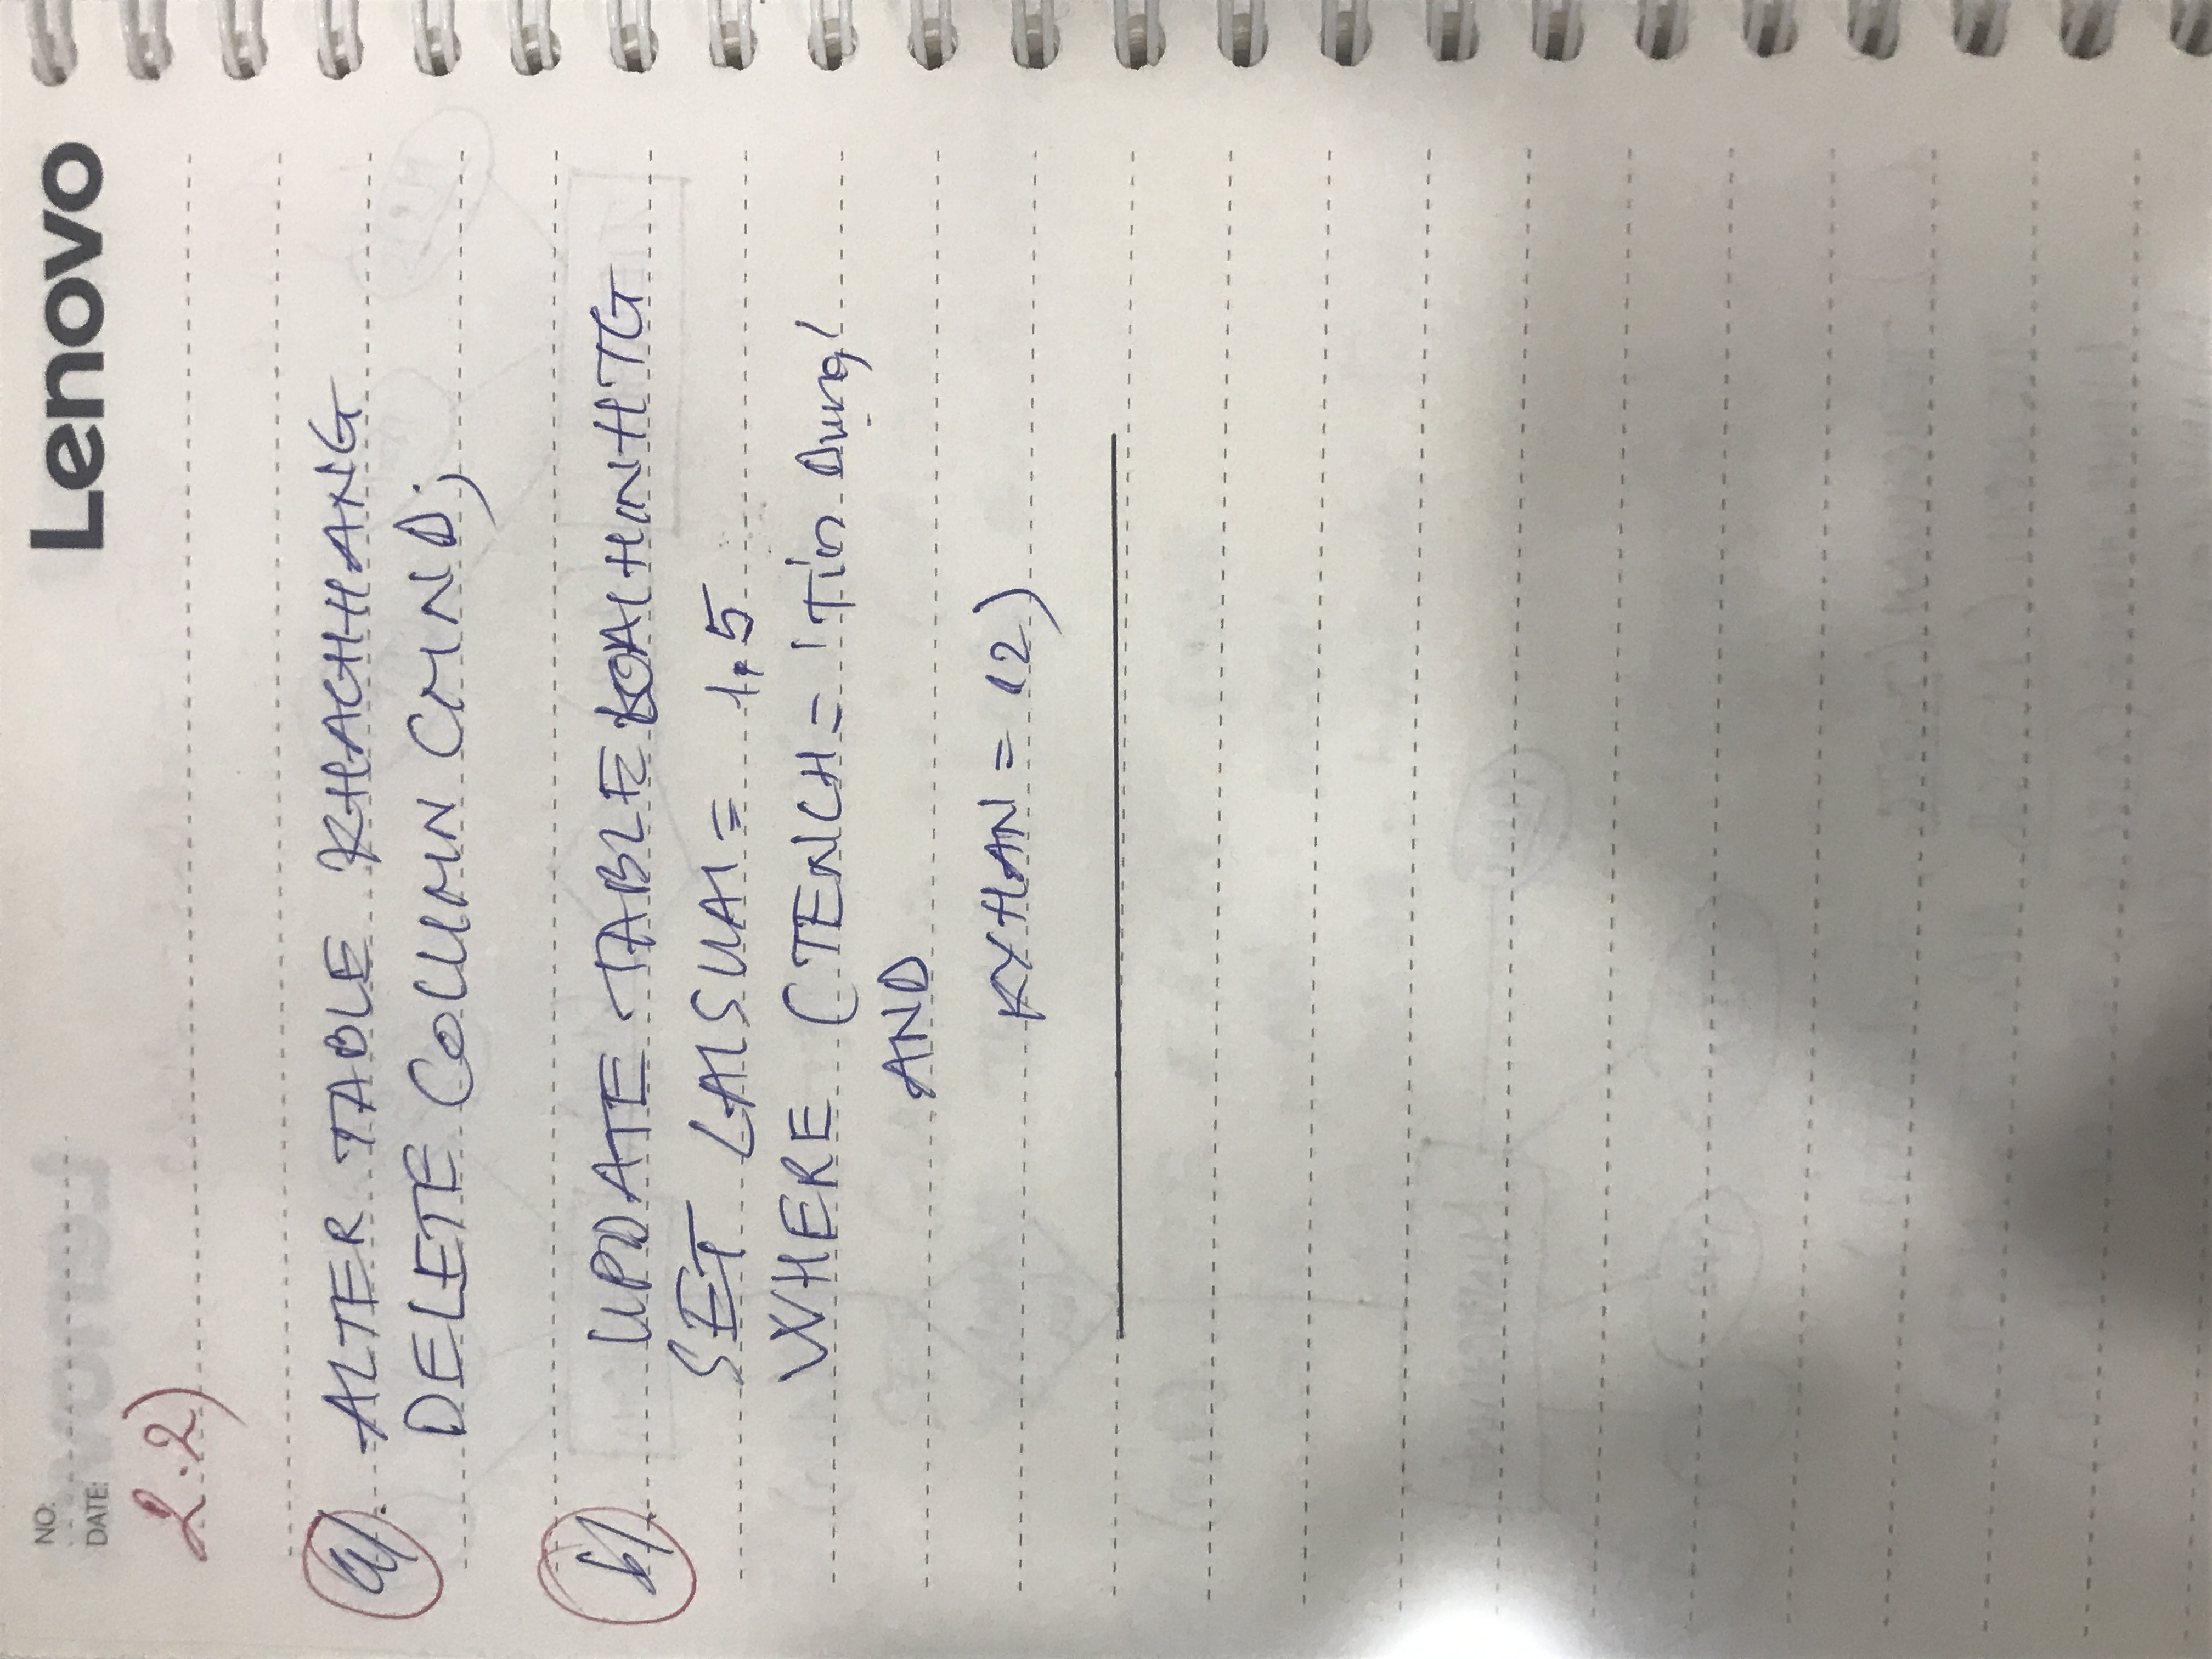 NO:
Lenovo
DATE:
2.2)
a/. ALTER TABLE KHACHHANG
DELETE COLUMN CMND;
b/. UPDATE TABLE LOAIHINHTG
SET LAISUAI = 1,5
WHERE (TENCH = 'Tín Dụng'
AND
KYHAN = 12)